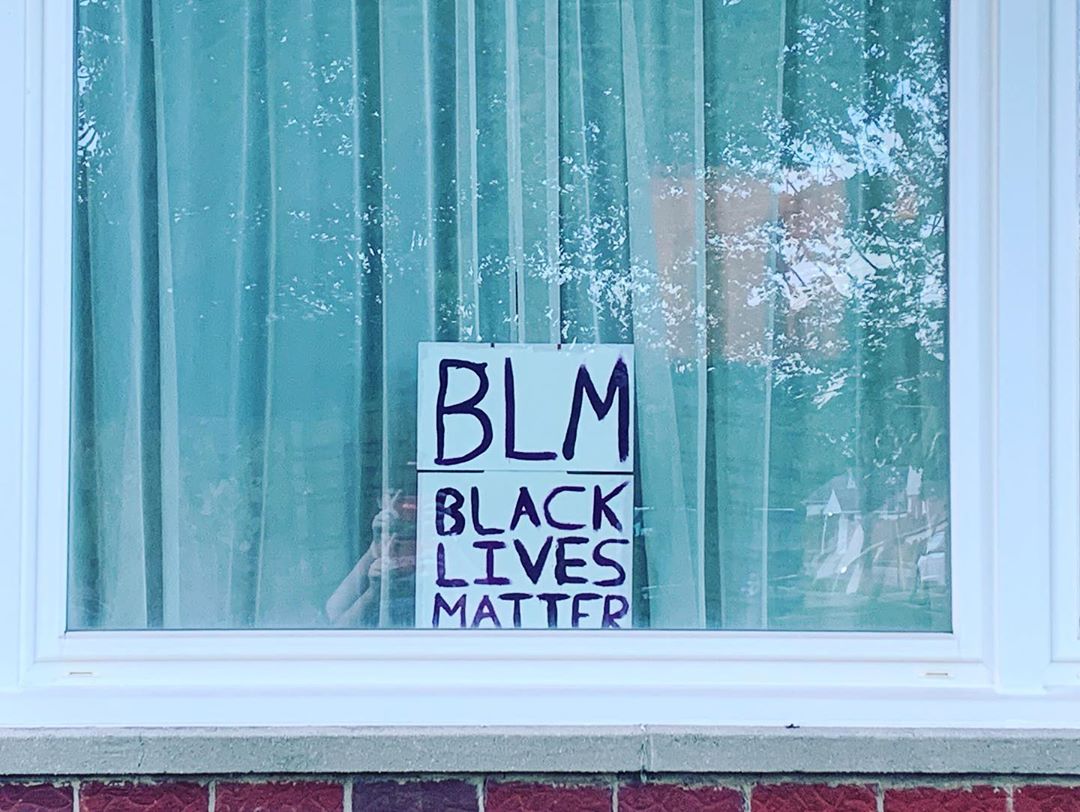 BLM
BLACK
LIVES
MATTER